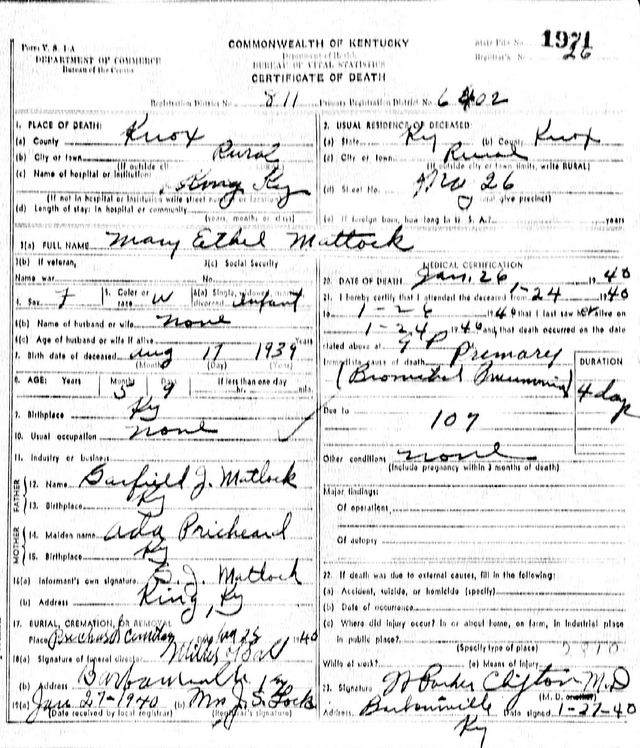 Form V. S. 1-A
DEPARTMENT OF COMMERCE
Bureau of the Census
COMMONWEALTH OF KENTUCKY
Department of Health
BUREAU OF VITAL STATISTICS
CERTIFICATE OF DEATH
State File No. 1971
Registrar's No. 26
Registration District No. 811 Primary Registration District No. 6402
1. PLACE OF DEATH:
(a) County Knox
(b) City or town Rural
(If outside
(c) Name of hospital or institution:
King Ky
(If not in hospital or institution write street number or location)
(d) Length of stay: in hospital or community
(years, months or days)
2. USUAL RESIDENCE OF DECEASED:
(a) State Ky (b) County Knox
(c) City or town Rural
(If outside city or town limits, write RURAL)
(d) Street No. 26
give precinct)
(e) If foreign born, how long in U. S. A.? years
3(a) FULL NAME Mary Ethel Matlock
3(b) If veteran, 3(c) Social Security
Name war No.
4. Sex F 5. Color or race W 6(a) Single, widowed, married, divorced Infant
6(b) Name of husband or wife none
6(c) Age of husband or wife if alive Years
7. Birth date of deceased Aug 17 1939
(Month) (Day) (Year)
8. AGE: Years Months Days If less than one day
5 9 hr. min.
9. Birthplace Ky
10. Usual occupation none
11. Industry or business
FATHER
12. Name Barfield J. Matlock
13. Birthplace Ky
MOTHER
14. Maiden name Ada Pricheard
15. Birthplace Ky
16(a) Informant's own signature B. J. Matlock
(b) Address King, Ky
17. BURIAL, CREMATION, OR REMOVAL
Place Prichard Cemetery 1940
18(a) Signature of funeral director
(b) Address Barbourville Ky
19(a) Jan 27-1940 (b) Mrs J. S. Lock
(Date received by local registrar) (Registrar's signature)
MEDICAL CERTIFICATION
20. DATE OF DEATH Jan. 26 1940
21. I hereby certify that I attended the deceased from 1-24 1940
to 1-26 1940 that I last saw her alive on
1-24 1940 and that death occurred on the date
stated above at 9 P
Immediate cause of death Primary
(Bronchial Pneumonia)
DURATION
4 days
Due to
107
Other conditions none
(Include pregnancy within 3 months of death)
Major findings:
Of operations
Of autopsy
22. If death was due to external causes, fill in the following:
(a) Accident, suicide, or homicide (specify)
(b) Date of occurrence
(c) Where did injury occur? In or about home, on farm, in industrial place
in public place?
(Specify type of place)
While at work? (e) Means of injury
23. Signature W Parker Clifton M.D
(M. D. or other)
Address Barbourville Ky Date signed 1-27-40